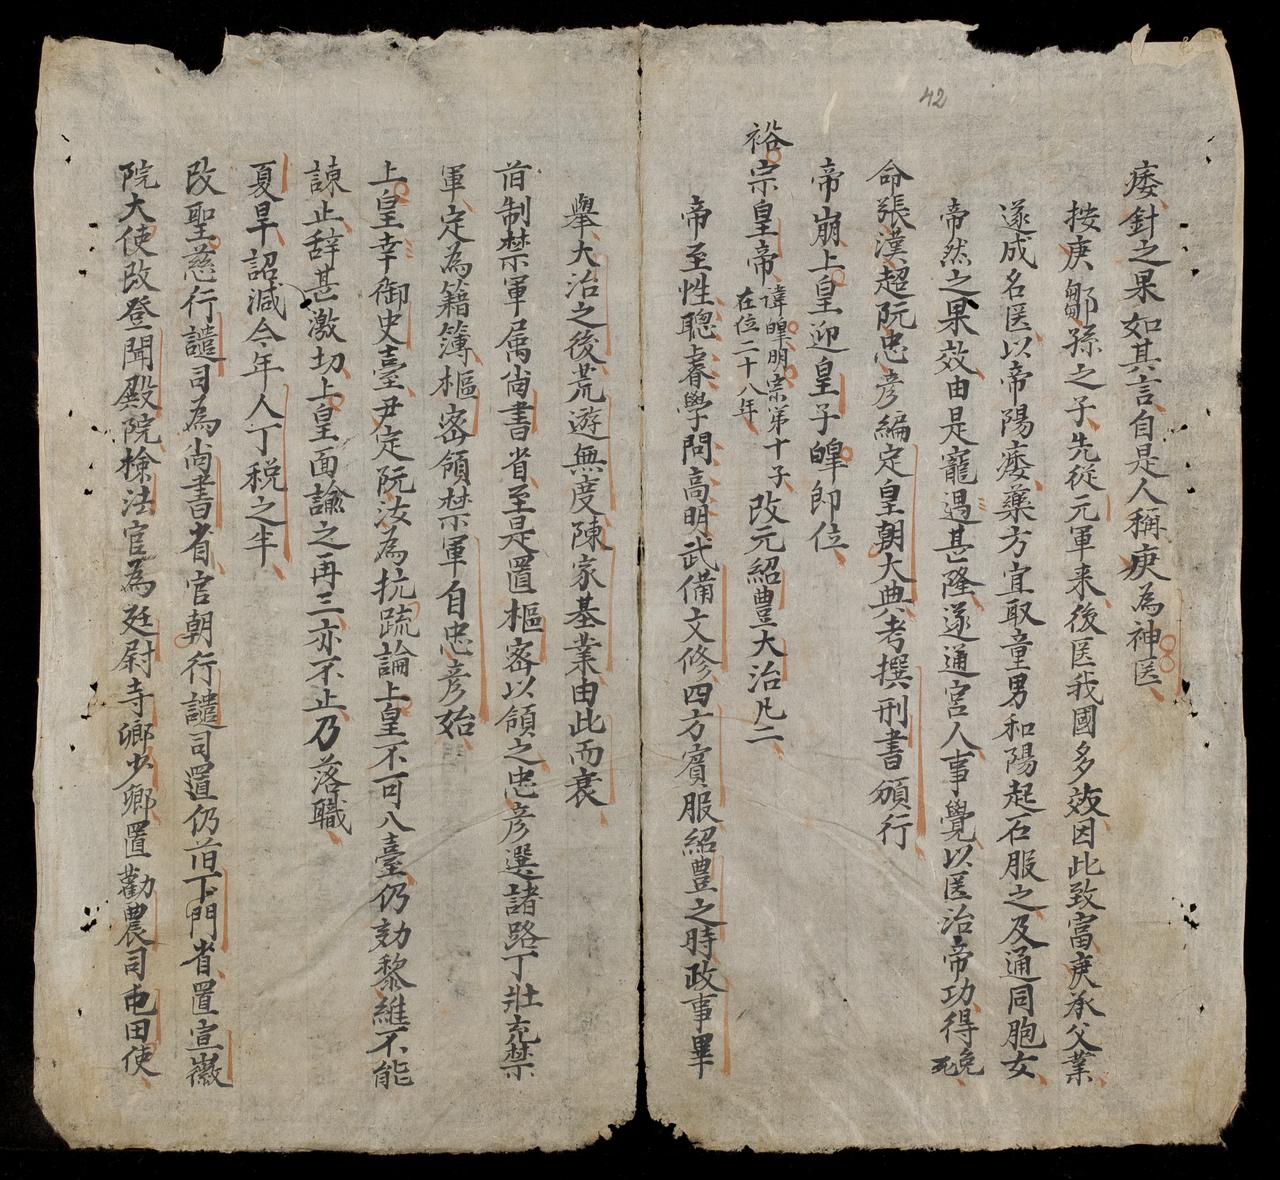 42
痿針之果如其言自是人稱庚為神医
按庚鄒孫之子先從元軍来後医我國多效因此致富庚承父業
遂成名医以帝陽痿藥方宜取童男和陽起石服之及通同胞女
帝然之果效由是寵遇甚隆遂通宮人事覺以医治帝功得免死
命張漢超阮忠彦編定皇朝大典考撰刑書頒行
帝崩上皇迎皇子暭即位
裕宗皇帝諱暭明宗第十子在位二十八年改元紹豊大治凡二
帝至性聰睿學問高明武備文修四方賓服紹豊之時政事畢
舉大治之後荒遊無度陳家基業由此而衰
前制禁軍属尚書省至是置樞密以領之忠彦選諸路丁壯充禁
軍定為籍簿樞密領禁軍自忠彦始
上皇幸御史臺尹定阮汝為抗疏論上皇不可八臺仍劾黎維不能
諫止辞甚激切上皇面諭之再三亦不止乃落職
夏旱詔减今年人丁税之半
改聖慈行譴司為尚書省官朝行譴司置仍前下門省置宣徽
院大使改登聞殿院檢法官為廷尉寺鄉少鄉置勸農司屯田使